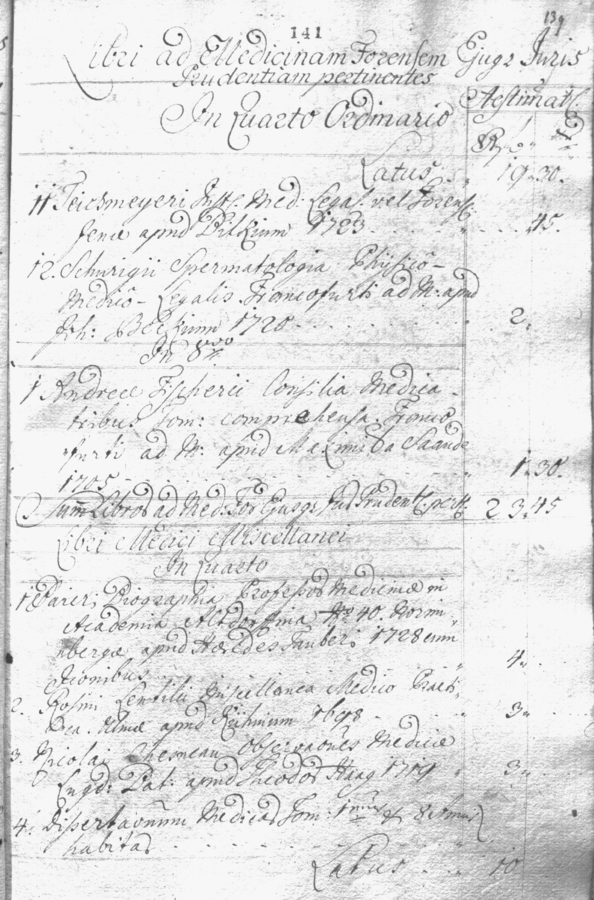 141
139
Libri ad Medicinam Forensem Ejusq Juris
Prudentiam pertinentes
Aestimat
In Quarto Ordinario
Latus 19. 30.
11 Teichmeyeri Inst. Med: Legal. vel Forens.
Jenae apud 1723 45
12. Schurigii Spermatologia Physico-
Medico-Legalis Francofurti ad M: apud
Joh: Beckium 1720 2.
In 8vo
1 Andreae Fischeri Consilia Medica
tribus Tom: comprehensa Franco
furti ad M: apud Maximil a Saande
1705 1. 30.
Sum Libror ad Med: For Ejusq Jud Prudent pert. 23. 45
Libri Medici Miscellanei
In Quarto
1 Baieri, Biographia Professor Medicinae in
Academia Altdorffina Norim
bergae apud Haeredes Tauberi 1728 cum
Iconibus 4.
2. Rosini Lentilii Miscellanea Medico Practi
ca. Ulmae apud Kühnium 1698 3.
3. Nicolai Chemeau Observationes Medicae
Lugd: Bat: apud Theodor Haag 1719 3.
4. Dissertationum Medicar Tom: 1mus &
habitar
Latus 10